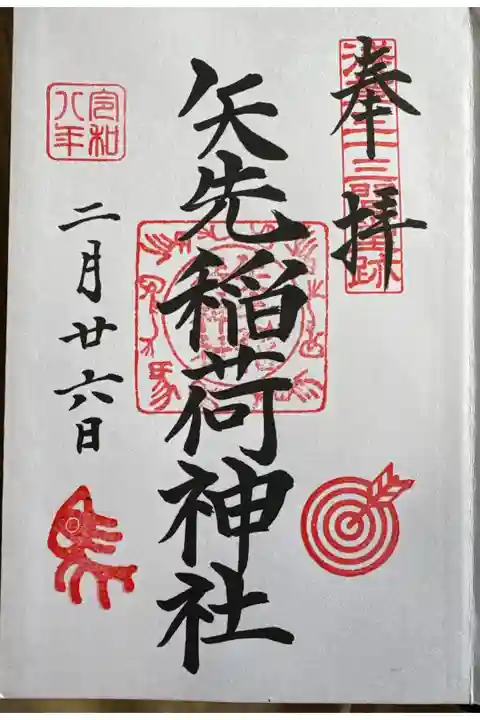 奉拝
浅草三十三間堂跡
矢先稲荷神社
令和八年
二月廿六日
馬